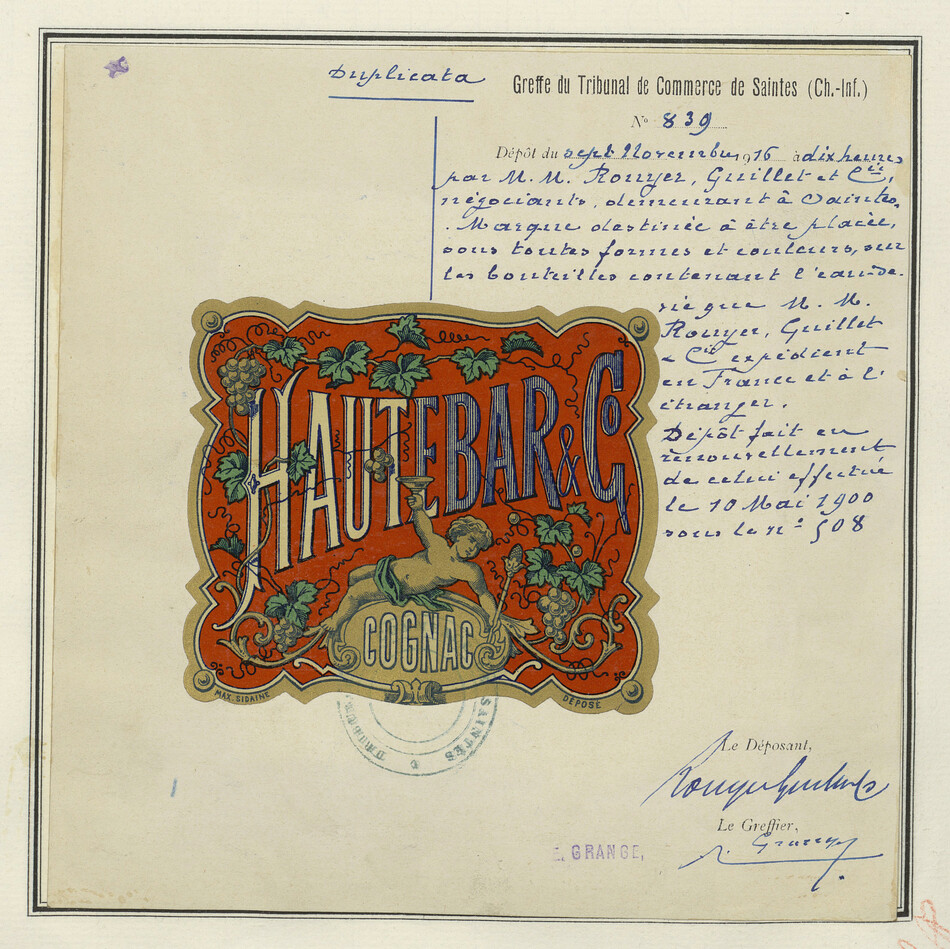 Duplicata
Greffe du Tribunal de Commerce de Saintes (Ch.-Inf.)
N° 839
Dépôt du sept Novembre 1916 à dix heures
par M. M. Rouyer, Guillet et Cie,
négociants, demeurant à Saintes.
Marque destinée à être placée,
sous toutes formes et couleurs, sur
les bouteilles contenant l'eau-de-
vie que M. M.
Rouyer, Guillet
& Cie expédient
en France et à l'
étranger.
Dépôt fait en
renouvellement
de celui effectué
le 10 Mai 1900
sous le n° 508
HAUTEBAR & Co
COGNAC
MAX. SIDAINE
DÉPOSÉ
SAINTES
Le Déposant,
Rouyer Guillet & Co
Le Greffier,
E. GRANGE,